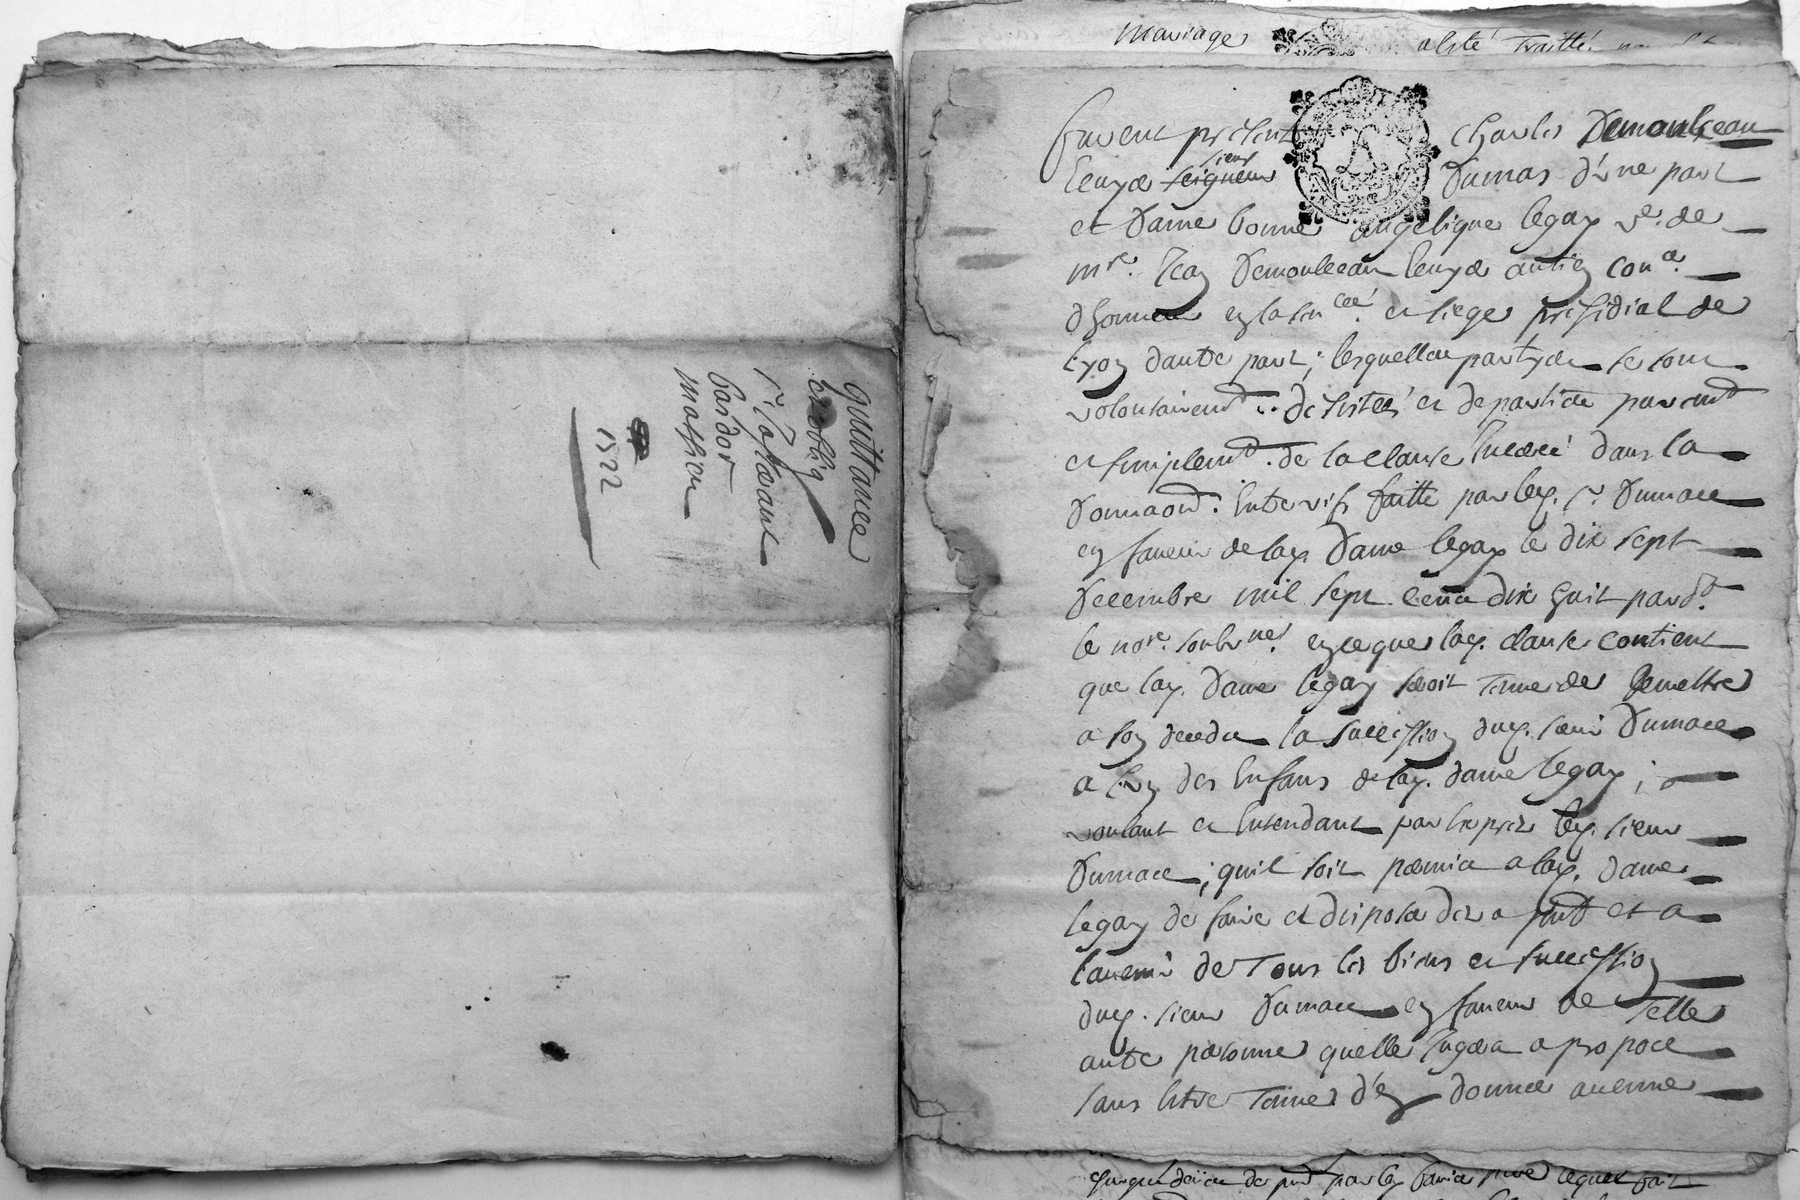 quittance
et oblig
Bardot
mathieu
1722
mariage
alité Traitté
furent présent Charles Demonleeau
seigneur sieur Dumas d'vne part
et Dame bonne angelique legay ve. de
mre. Jean Demonleeau antien
d'honneur en la sen cee. et siege presidial de
Lyon dautre part; lesquelles partyes se sont
volontairemt. desistées et departies puremt
et simplemt. de la clause inserée dans la
Donnaon. Entre vifs faitte par led. sr. Dumace
en faveur de lad. Dame legay le dix sept
Decembre mil sept cent dix huit pardt.
le nore. soubsne. en ce que lad. clause contient
que lad. Dame legay seroit tenue de Remettre
a son deceds la succession dud. sieur Dumace
a l'un des Enfans de lad. dame legay;
voulant et Entendant par Exprez led. sieur
Dumace; quil soit permis a lad. Dame
legay de faire et disposer dez a pnt et a
lavenir de Tous les biens et succession
dud. sieur Dumace en faveur de Telle
autre personne quelle Jugera a propoce
sans Estre Tenue d'en donner aucune
par led. lequel fait